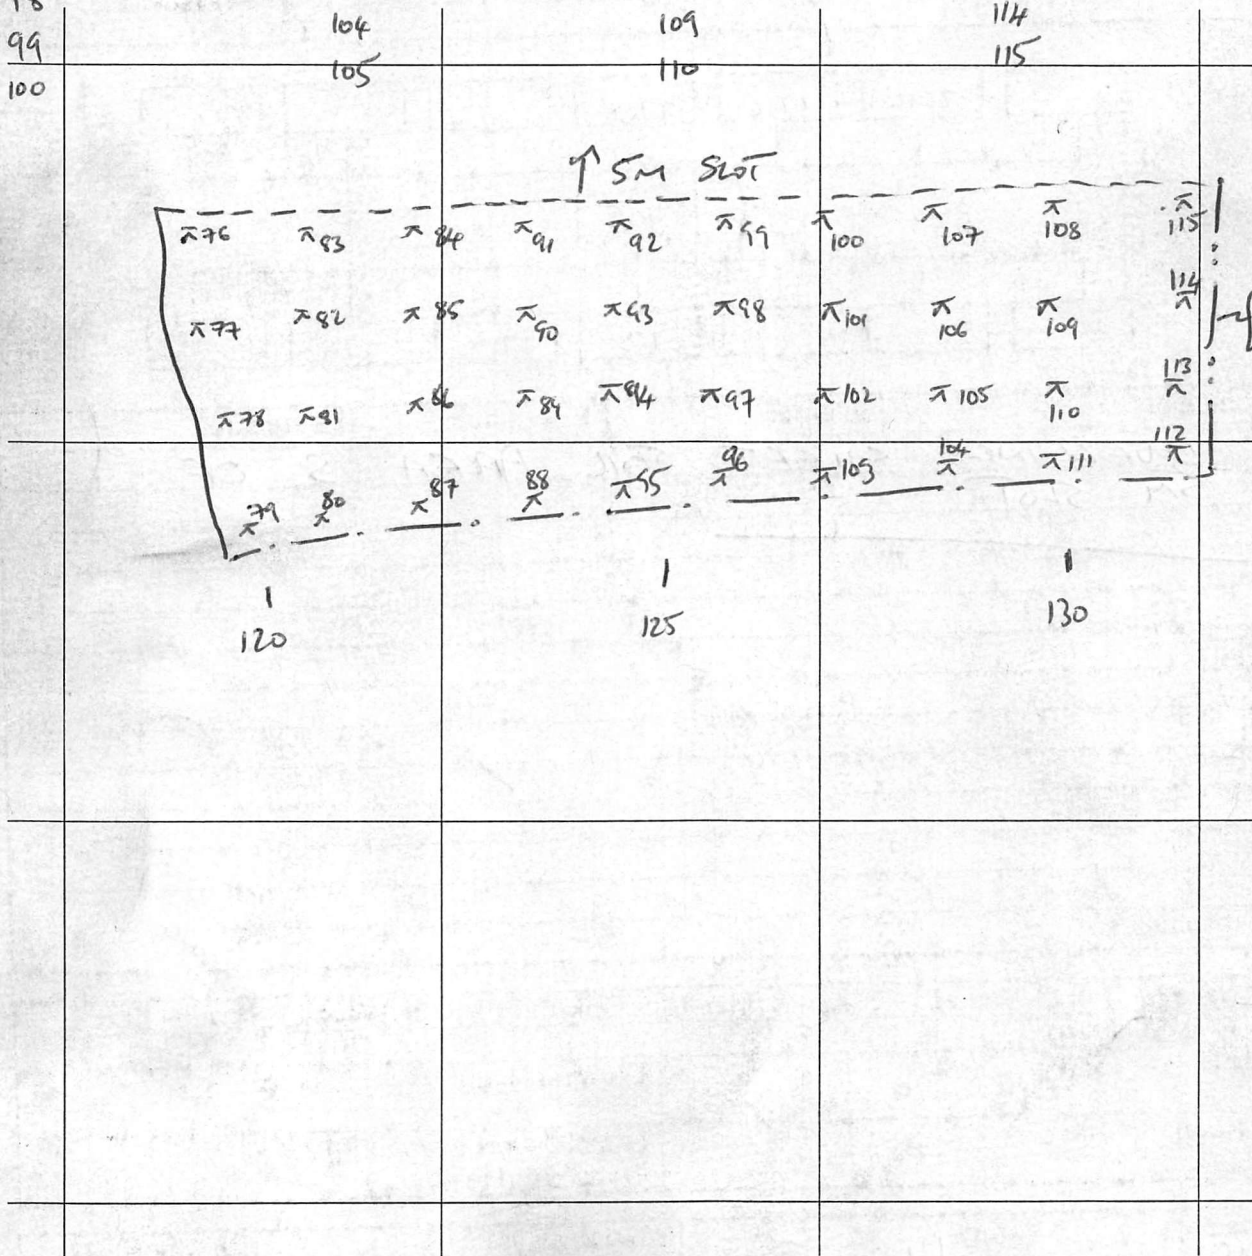 99 104 109 114
100 105 110 115
↑ 5M SLOT
⊼76 ⊼83 ⊼84 ⊼91 ⊼92 ⊼99 ⊼100 ⊼107 ⊼108 ⊼115
⊼77 ⊼82 ⊼85 ⊼90 ⊼93 ⊼98 ⊼101 ⊼106 ⊼109 ⊼114
⊼78 ⊼81 ⊼86 ⊼89 ⊼94 ⊼97 ⊼102 ⊼105 ⊼110 ⊼113
⊼79 ⊼80 ⊼87 ⊼88 ⊼95 ⊼96 ⊼103 ⊼104 ⊼111 ⊼112
120 125 130